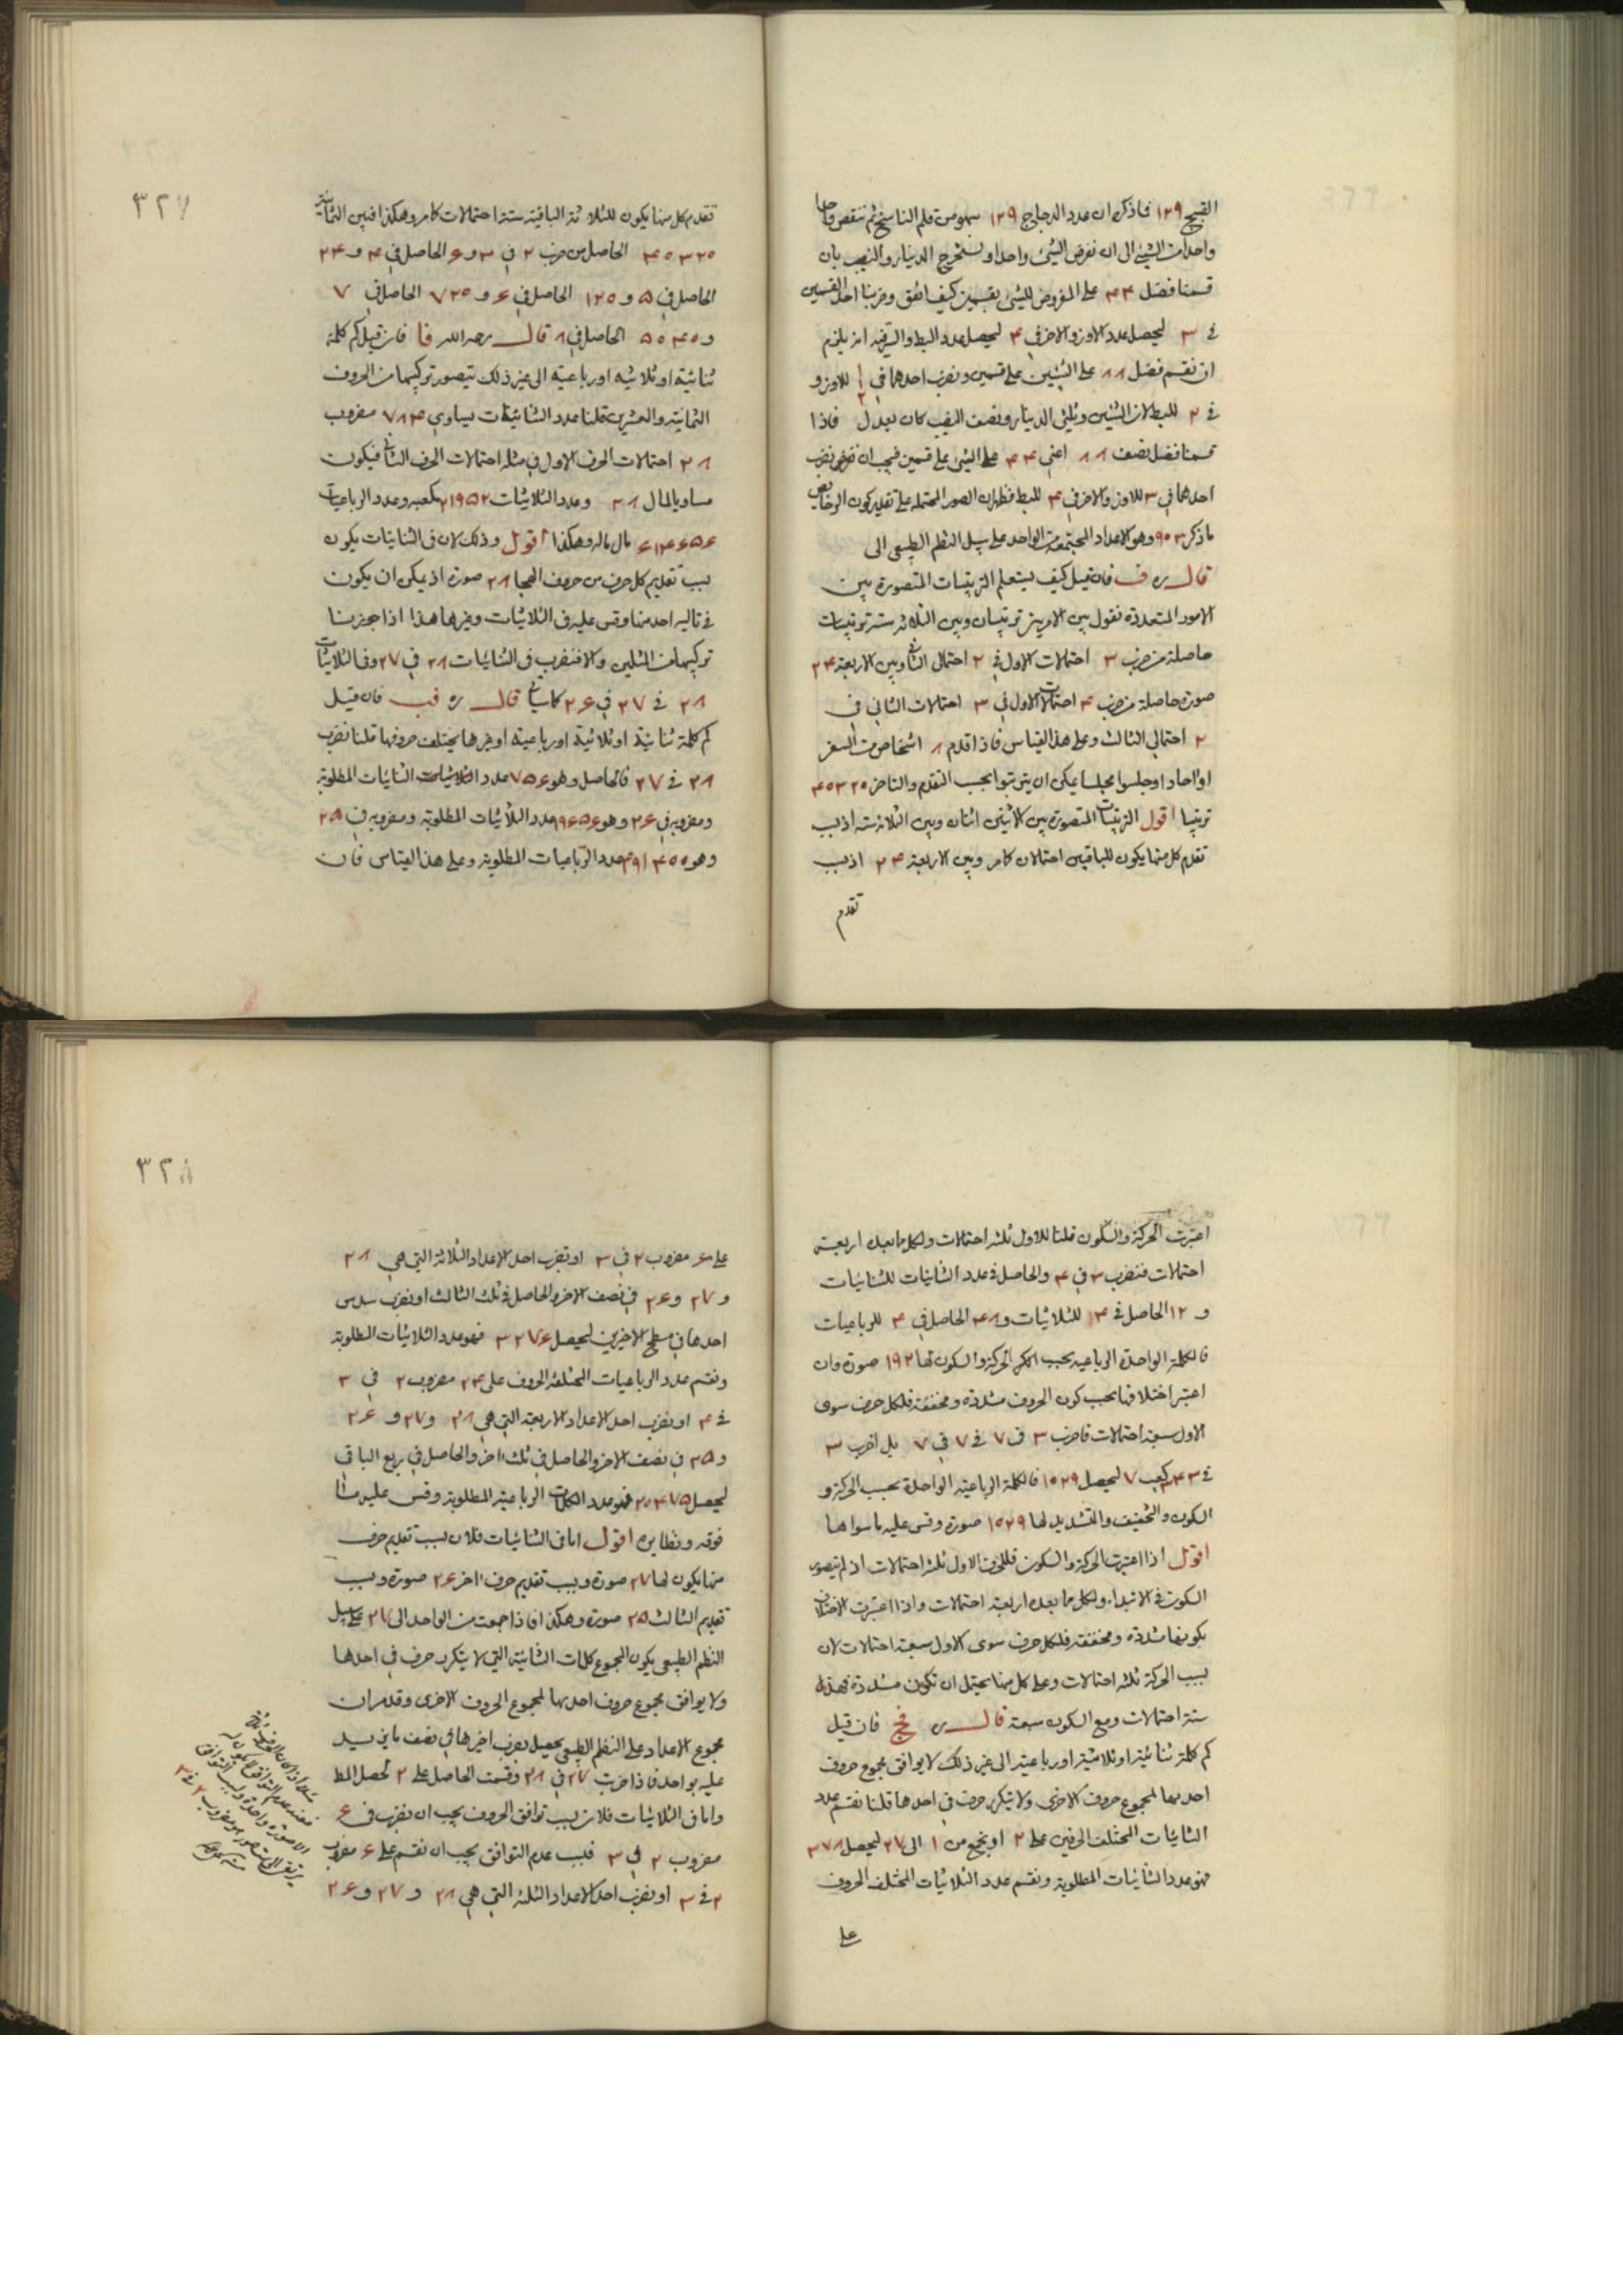 القبج ١٢٩ فما ذكره ان عدد الدجاج ١٢٩ سهو من قلم الناسخ ثم ننقص واحدا
واحدا من الشيئ الى ان نفرض الشيئ واحدا و نستخرج الدينار والنصيب بان
قسمنا فضل ٤٤ على المفروض للشيئ بقسمين كيف اتفق وضربنا احد القسمين
فى ٣ ليحصل عدد الاوز والاخر فى ٤ ليحصل عدد البط والسر فيه انه يلزم
ان نقسم فضل ٨٨ على الشيئين على قسمين ونضرب احدهما فى للاوز و
فى ٢ للبط لان الشيئين وثلثى الدينار ونصف النصيب كان يعدل فاذا
قسمنا فضل نصف ٨٨ اعنى ٤٤ على الشيئ على قسمين فيجب ان نضرب
احدهما فى ٣ للاوز والاخر فى ٤ للبط فظهر ان الصور المحتملة على تقدير كون الدجاج
ما ذكر ٩٠٣ وهو الاعداد المجتمعة من الواحد على سبيل النظم الطبيعى الى
قال ره ف فان قيل كيف يستعلم الترتيبات المتصورة بين
الامور المتعددة نقول بين الامرين ترتيبان وبين الثلاثة ستة ترتيبات
حاصلة من ضرب ٣ احتمالات الاول فى ٢ احتمالى الثانى وبين الاربعة ٢٤
صورة حاصلة من ضرب ٤ احتمالات الاول فى ٣ احتمالات الثانى فى
٢ احتمالى الثالث وعلى هذا القياس فاذا قدم ٨ اشخاص من السفر
او احاد او جلسوا مجلسا يمكن ان يترتبوا بحسب التقدم والتاخر ٤٠٣٢٠
ترتيبا اقول الترتيبات المتصورة بين الاثنين اثنان وبين الثلاثة ستة اذ بسبب
تقدم كل منها يكون للباقيين احتمالان كما مر وبين الاربعة ٢٤ اذ بسبب
تقدم
٣٢٧
تقدم كل منها يكون للثلاثة الباقية ستة احتمالات كما مر وهكذا فبين الثمانية
٤٠٣٢٠ الحاصل من ضرب ٢ فى ٣ و ٦ الحاصل فى ٤ و ٢٤
الحاصل فى ٥ و ١٢٠ الحاصل فى ٦ و ٧٢٠ الحاصل فى ٧
و ٥٠٤٠ الحاصل فى ٨ قال رحمه الله فا فان قيل كم كلمة
ثنائية او ثلاثية او رباعية الى غير ذلك يتصور تركيبها من الحروف
الثمانية والعشرين قلنا عدد الثنائيات يساوى ٧٨٤ مضروب
٢٨ احتمالات الحرف الاول فى مثله احتمالات الحرف الثانى فيكون
مساويا لمال ٢٨ وعدد الثلاثيات ٢١٩٥٢ مكعبه وعدد الرباعيات
٦١٤٦٥٦ مال ماله وهكذا اقول وذلك لان فى الثنائيات يكون
بسبب تقديم كل حرف من حروف الهجا ٢٨ صورة اذ يمكن ان يكون
فى تاليه احد منها وقس عليه فى الثلاثيات وغيرها هذا اذا جوزنا
تركيبها من المثلين والا فنضرب فى الثنائيات ٢٨ فى ٢٧ وفى الثلاثيات
٢٨ فى ٢٧ فى ٢٦ كما سياتى قال ره فب فان قيل
كم كلمة ثنائية او ثلاثية او رباعية او غيرها يختلف حروفها قلنا نضرب
٢٨ فى ٢٧ فالحاصل وهو ٧٥٦ عدد الثنائيات المطلوبة
ومضروبه فى ٢٦ وهو ١٩٦٥٦ عدد الثلاثيات المطلوبة ومضروبه فى ٢٥
وهو ٤٩١٤٠٠ عدد الرباعيات المطلوبة وعلى هذا القياس فان
اعتبرت الحركة والسكون قلنا للاول ثلثة احتمالات ولكل ما بعده اربعة
احتمالات فنضرب ٣ فى ٤ والحاصل فى عدد الثنائيات للثنائيات
و ١٢ الحاصل فى ٤ للثلاثيات و ٤٨ الحاصل فى ٤ للرباعيات
فالكلمة الواحدة الرباعية بحسب الحركة والسكون لها ١٩٢ صورة وان
اعتبر اختلافها بحسب كون الحروف مشددة ومخففة فلكل حرف سوى
الاول سبعة احتمالات فاضرب ٣ فى ٧ فى ٧ فى ٧ بل اضرب ٣
فى ٣٤٣ مكعب ٧ ليحصل ١٠٢٩ فالكلمة الرباعية الواحدة بحسب الحركة و
السكون والتخفيف والتشديد لها ١٠٢٩ صورة وقس عليه ما سواها
اقول اذا اعتبرت الحركة والسكون فللحرف الاول ثلثة احتمالات اذ لم يتصور
السكون فى الابتداء ولكل ما بعده اربعة احتمالات واذا اعتبرت الاختلاف
بكونها مشددة ومخففة فلكل حرف سوى الاول سبعة احتمالات لان
بسبب الحركة ثلثة احتمالات وعلى كل منها يحتمل ان تكون مشددة فهذه
ستة احتمالات ومع السكون سبعة قال ره فج فان قيل
كم كلمة ثنائية او ثلاثية او رباعية الى غير ذلك لا يوافق مجموع حروف
احديها لمجموع حروف الاخرى ولا يتكرر حرف فى احدها قلنا نقسم عدد
الثنائيات المختلف الحرفين على ٢ او نجمع من ١ الى ٢٧ ليحصل ٣٧٨
فهو عدد الثنائيات المطلوبة ونقسم عدد الثلاثيات المختلف الحروف
على
٣٢٨
على ٦ مضروب ٢ فى ٣ او نضرب احد الاعداد الثلاثة التى هى ٢٨
و ٢٧ و ٢٦ فى نصف الاخر والحاصل فى ثلث الثالث او نضرب سدس
احدها فى مسطح الاخيرين ليحصل ٣٢٧٦ فهو عدد الثلاثيات المطلوبة
ونقسم عدد الرباعيات المختلفة الحروف على ٢٤ مضروب ٢ فى ٣
فى ٤ او نضرب احد الاعداد الاربعة التى هى ٢٨ و ٢٧ و ٢٦
و ٢٥ فى نصف الاخر والحاصل فى ثلث اخر والحاصل فى ربع الباقى
ليحصل ٢٠٤٧٥ فهو عدد الكلمات الرباعية المطلوبة وقس عليه ما
فوقه ونظايره اقول اما فى الثنائيات فلان بسبب تقديم حرف
منها يكون لها ٢٧ صورة وبسبب تقديم حرف اخر ٢٦ صورة وبسبب
تقديم الثالث ٢٥ صورة وهكذا فاذا جمعت من الواحد الى ٢٧ على سبيل
النظم الطبيعى يكون المجموع كلمات الثنائية التى لا يتكرر حرف فى احدها
ولا يوافق مجموع حروف احديها لمجموع الحروف الاخرى وقد مر ان
مجموع الاعداد على النظم الطبيعى يحصل بضرب اخيرها فى نصف ما يزيد
عليه بواحد فاذا ضربت ٢٧ فى ٢٨ وقسمت الحاصل على ٢ يحصل المط
واما فى الثلاثيات فلان بسبب توافق الحروف يجب ان نضرب فى ٦
مضروب ٢ فى ٣ فبسبب عدم التوافق يجب ان نقسم على ٦ مضروب
٢ فى ٣ او نضرب احد الاعداد الثلثة التى هى ٢٨ و ٢٧ و ٢٦